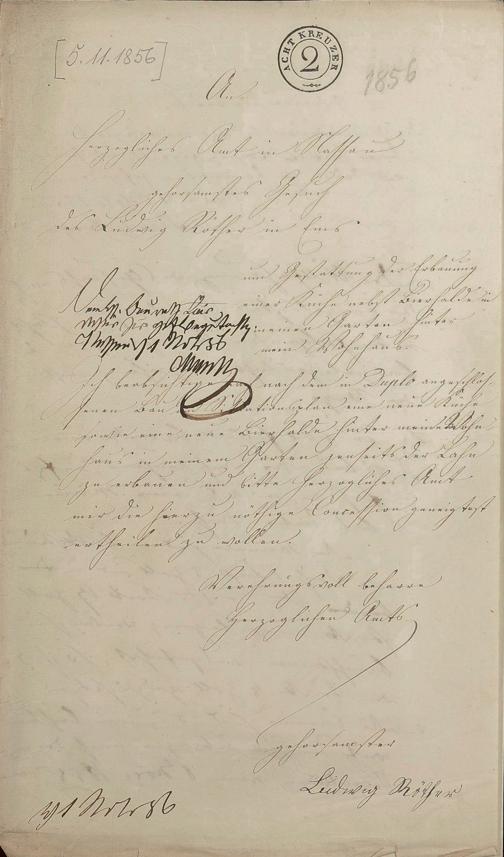 [5.11.1856]
ACHT KREUZER
2
1856
An
Herzogliches Amt in Nassau
gehorsamstes Gesuch
des Ludwig Röther in Ems
um Gestattung der Erbauung
einer Küche nebst Bierhalle in
meinem Garten hinter
mein Wohnhaus.
Ich beabsichtige nach dem in Duplo angeschlos
senen Bau u. Situationsplan eine neue Küche
sowie eine neue Bierhalle hinter mein Wohn
haus in meinem Garten jenseits der Lahn
zu erbauen und bitte Herzogliches Amt
mir die hierzu nöthige Concession geneigtest
ertheilen zu wollen.
Verehrungsvoll beharre
Herzoglichen Amts
gehorsamster
Ludwig Röther